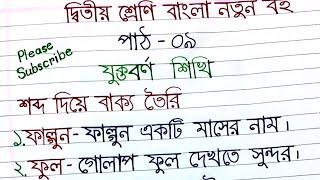 দ্বিতীয় শ্রেণি বাংলা নতুন বই
Please
Subscribe
পাঠ - ০৯
যুক্তবর্ণ শিখি
শব্দ দিয়ে বাক্য তৈরি
১. ফাল্গুন - ফাল্গুন একটি মাসের নাম।
২. ফুল - গোলাপ ফুল দেখতে সুন্দর।